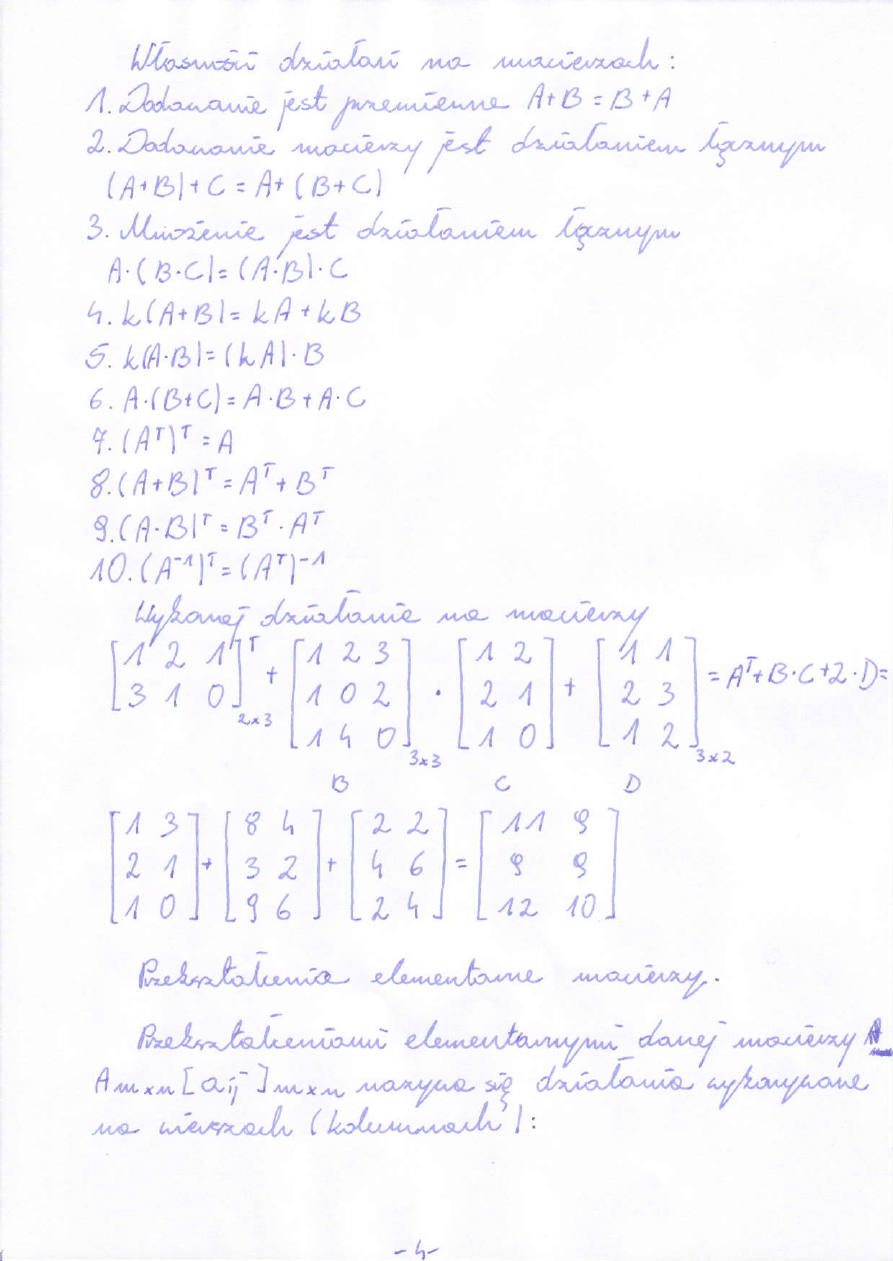 Własności działań na macierzach:
1. Dodawanie jest przemienne A+B=B+A
2. Dodawanie macierzy jest działaniem łącznym
(A+B)+C=A+(B+C)
3. Mnożenie jest działaniem łącznym
A·(B·C)=(A·B)·C
4. k(A+B)=kA+kB
5. k(A·B)=(kA)·B
6. A·(B+C)=A·B+A·C
7. (Aᵀ)ᵀ=A
8. (A+B)ᵀ=Aᵀ+Bᵀ
9. (A·B)ᵀ=Bᵀ·Aᵀ
10. (A⁻¹)ᵀ=(Aᵀ)⁻¹
Wykonaj działanie na macierzy
[1 2 1]ᵀ [1 2 3] [1 2] [1 1]
[3 1 0] 2x3 + [1 0 2] · [2 1] + [2 3] = Aᵀ+B·C+2·D=
[1 4 0] 3x3 [1 0] [1 2] 3x2
B C D
[1 3] [8 4] [2 2] [11 9]
[2 1] + [3 2] + [4 6] = [9 9]
[1 0] [9 6] [2 4] [12 10]
Przekształcenia elementarne macierzy.
Przekształceniami elementarnymi danej macierzy A
Amxn[aij]mxn nazywa się działania wykonywane
na wierszach (kolumnach):
-4-